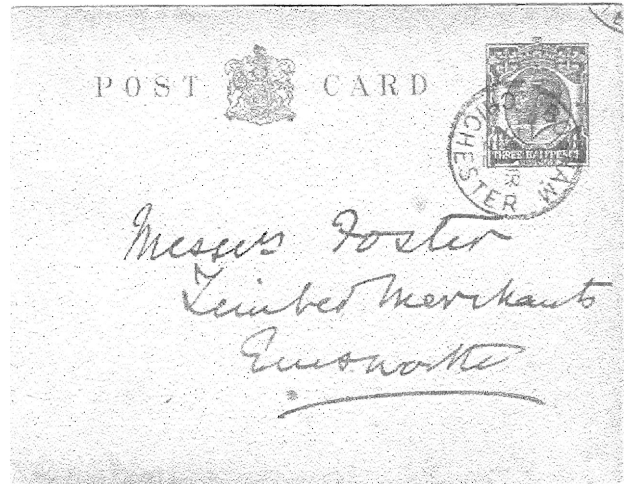 POST CARD
THREE HALFPENCE
CHICHESTER
Messrs Foster
Timber Merchants
Emsworth